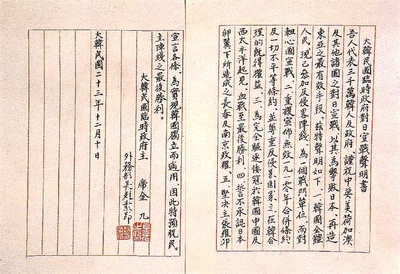 大韓民國臨時政府對日宣戰聲明書
吾人代表三千萬韓人及政府謹祝中英美荷加濠
及其他諸國之對日宣戰以其為擊敗日本再造
東亞之最有效手段茲特聲明如下一韓國全體
人民現已參加反侵畧陣綫為一個戰鬥單位而對
軸心國宣戰二重複宣佈無效一九一0年合併條約
及一切不平等條約並尊重反侵畧國家之在韓合
理的既得權益三為完全驅逐倭寇於韓國中國及
西太平洋起見血戰至最後勝利四誓不承認日本
卵翼下所造成之長春及南京政權五堅决主張羅邱
宣言各條為實現韓國獨立而適用因此特預祝民
主陣綫之最後勝利
大韓民國臨時政府主席金九
外務部長
大韓民國二十三年十二月十日